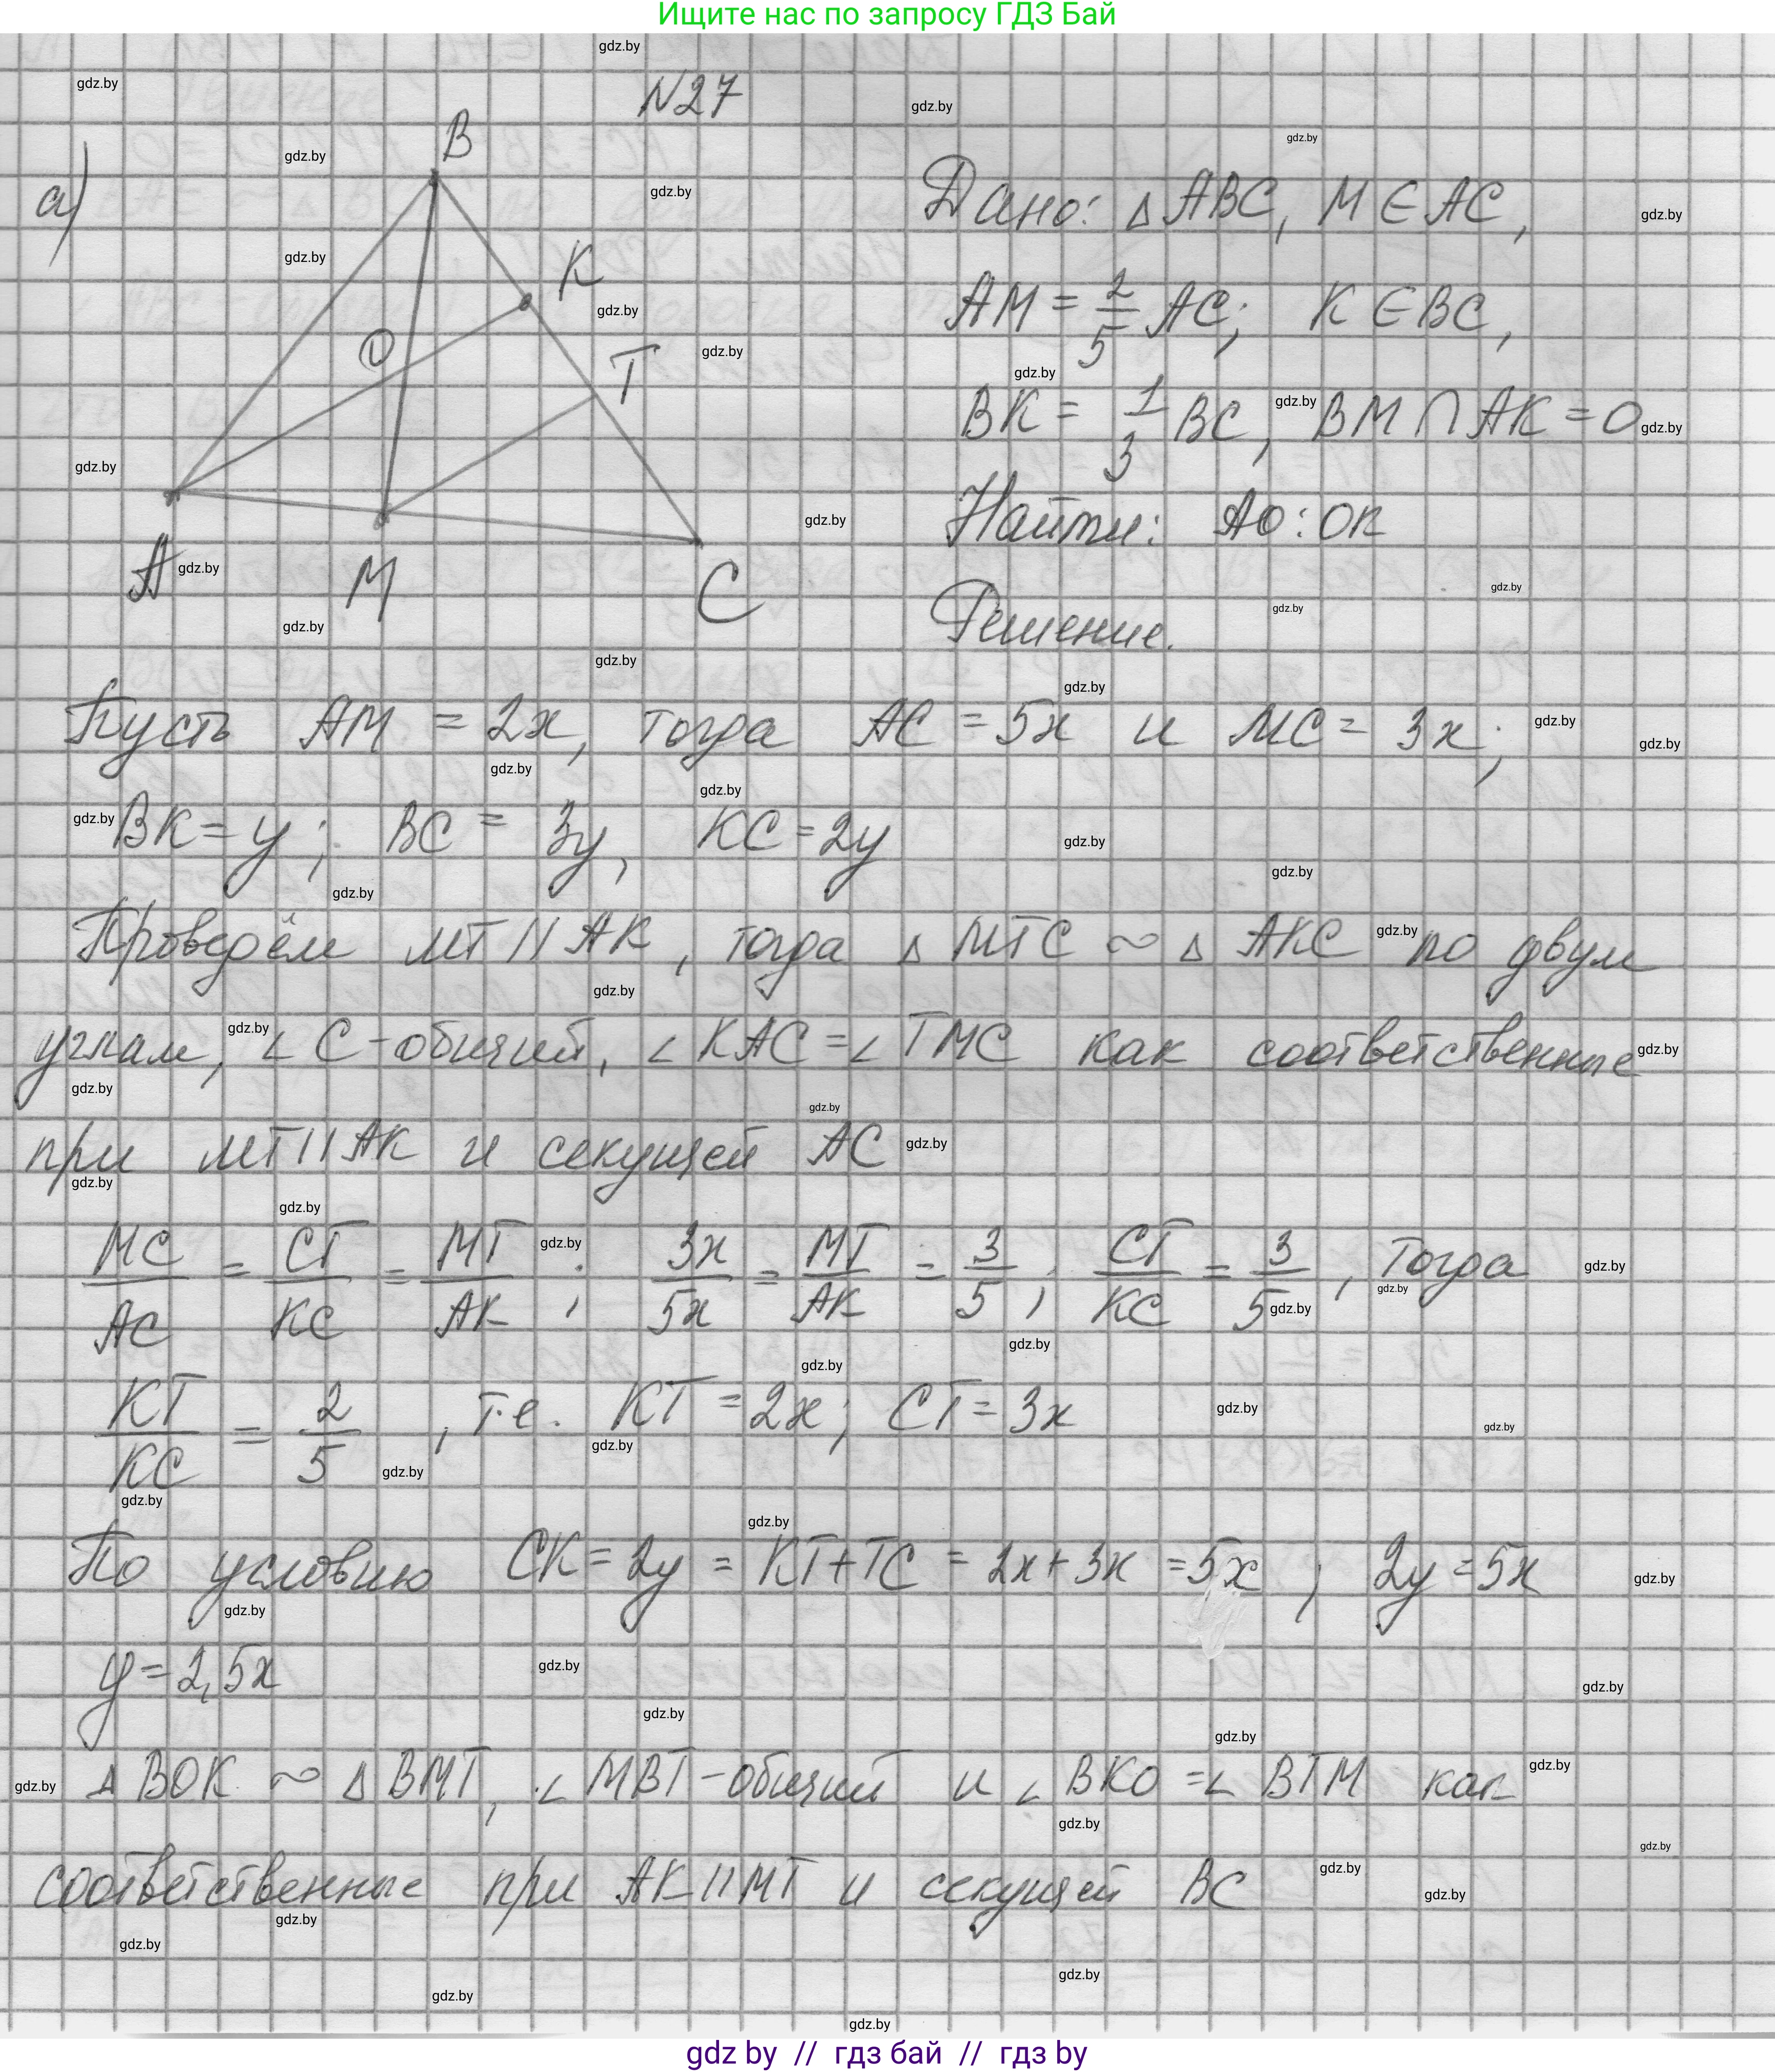 Ищите нас по запросу ГДЗ Бай
N27
а)
B
K
O
T
A
M
C
Дано: △ABC, M∈AC,
AM = 2/5 AC; K∈BC,
BK = 1/3 BC, BM∩AK=O
Найти: AO:OK
Решение.
Пусть AM = 2x, тогда AC = 5x и MC = 3x;
BK = y; BC = 3y, KC = 2y
Проведём MT || AK, тогда △ MTC ~ △ AKC по двум
углам, ∠C - общий, ∠KAC = ∠TMC как соответственные
при MT || AK и секущей AC
MC/AC = CT/KC = MT/AK; 3x/5x = MT/AK = 3/5; CT/KC = 3/5, Тогда
KT/KC = 2/5, т.е. KT = 2x; CT = 3x
По условию CK = 2y = KT+TC = 2x+3x = 5x; 2y = 5x
y = 2,5x
△ BOK ~ △ BMT, ∠MBT - общий и ∠BKO = ∠BTM как
соответственные при AK || MT и секущей BC
gdz.by
gdz by // гдз бай // гдз by